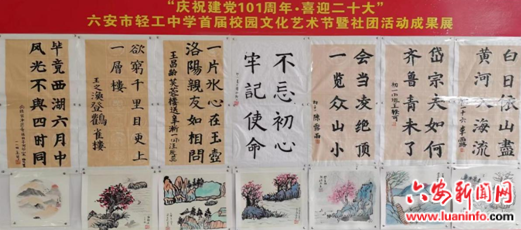 “庆祝建党101周年·喜迎二十大”
六安市轻工中学首届校园文化艺术节暨社团活动成果展
白日依山盡
黄河入海流
岱宗夫如何
齊魯青未了
会当凌绝顶
一览众山小
不忘初心
牢記使命
一片氷心在玉壺
洛陽親友如相問
欲窮千里目更上
一層樓
王之渙登鸛雀樓
毕竟西湖六月中
风光不與四时同
六安新闻网
www.luaninfo.com